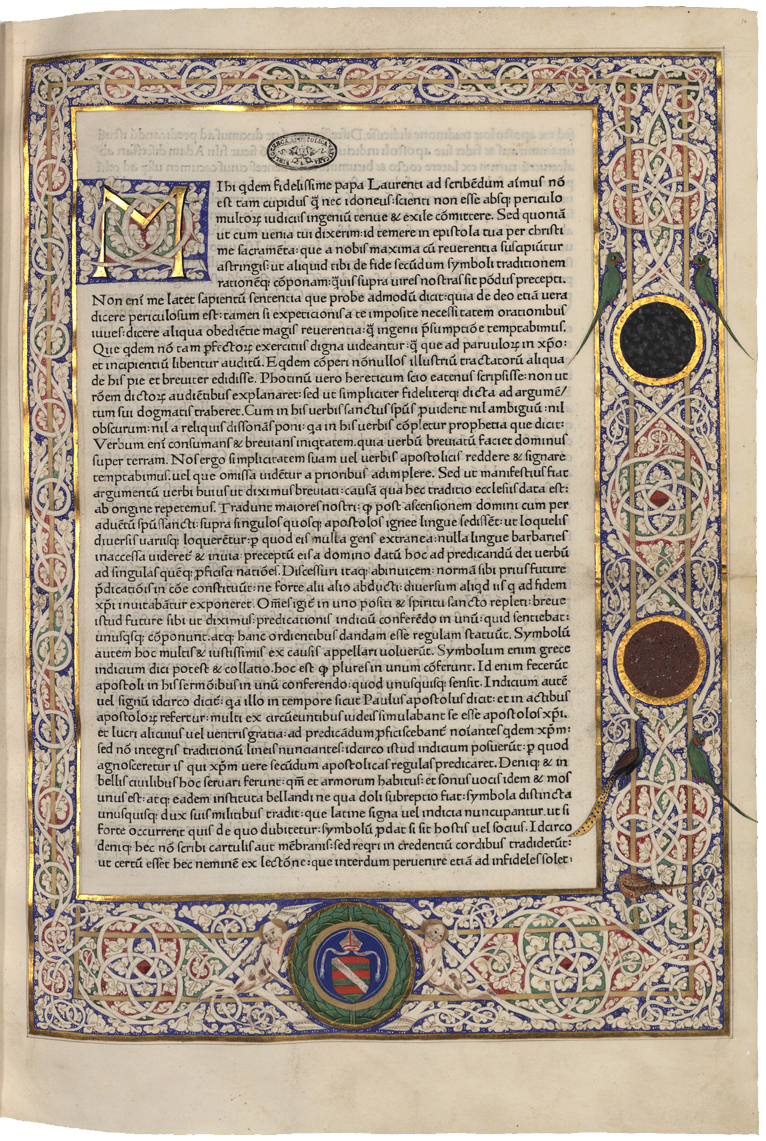 MIhi qdem fidelissime papa Laurenti ad scribēdum aīmus nō
est tam cupidus q̄ nec idoneus: scienti non esse absq; periculo
multoꝝ iudiciis ingeniū tenue & exile cōmittere. Sed quoniā
ut cum uenia tui dixerim: id temere in epistola tua per christi
me sacramēta: que a nobis maxima cū reuerentia suscipiūtur
astringis: ut aliquid tibi de fide secūdum symboli traditionem
rationēq; cōponam: q̄uis supra uires nostras sit pōdus precepti.
Non enī me latet sapientū sententia que probe admodū dicit: quia de deo etiā uera
dicere periculosum est: tamen si expeticionis a te imposite necessitatem orationibus
iuues: dicere aliqua obediētie magis reuerentia: q̄ ingenii p̄sumptiōe temptabimus.
Que qdem nō tam pfectoꝝ exercitiis digna uideantur: q̄ que ad paruuloꝝ in xp̄o:
et incipientiū libentur auditū. Eqdem cōperi nōnullos illustriū tractatorū aliqua
de his pie et breuiter edidisse. Photinū uero hereticum scio eatenus scripsisse: non ut
rōem dictoꝝ audiētibus explanaret: sed ut simpliciter fideliterq; dicta ad argumē/
tum sui dogmatis traheret. Cum in his uerbis sanctus sp̄us puiderit nil ambiguū: nil
obscurum: nil a reliquis dissonās poni: qa in his uerbis cōpletur prophetia que dicit:
Verbum enī consumans & breuians iniqtatem. quia uerbū breuiatū faciet dominus
super terram. Nos ergo simplicitatem suam uel uerbis apostolicis reddere & signare
temptabimus: uel que omissa uidētur a prioribus adimplere. Sed ut manifestius fiat
argumentū uerbi huius ut diximus breuiati: causā qua hec traditio ecclesiis data est:
ab origine repetemus. Tradunt maiores nostri: ꝙ post ascensionem domini cum per
aduētū sp̄us sancti: supra singulos quosq; apostolos ignee lingue sedissēt: ut loquelis
diuersis uariisq; loquerētur: p quod eis nulla gens extranea: nulla lingue barbaries
inaccessa uideret̄ & inuia: preceptū eis a domino datū hoc ad predicandū dei uerbū
ad singulas quēq; pficisci natiōes. Discessuri itaq; abinuicem: normā sibi prius future
p̄dicatiōis in cōe constituūt: ne forte alii alio abducti: diuersum aliqd iis q ad fidem
xp̄i inuitabātur exponeret. Om̄es igit̄ in uno positi & spiritu sancto repleti: breue
istud future sibi ut diximus: predicationis indiciū conferēdo in unū: quid sentiebat:
unusqsq; cōponunt. atq; hanc ordientibus dandam esse regulam statuūt. Symbolū
autem hoc multis & iustissimis ex causis appellari uoluerūt. Symbolum enim grece
indicium dici potest & collatio. hoc est ꝙ plures in unum cōferunt. Id enim fecerūt
apostoli in his sermōibus in unū conferendo: quod unusquisq; sensit. Indicium autē
uel signū idarco dicit̄: qa illo in tempore sicut Paulus apostolus dicit: et in actibus
apostoloꝝ refertur: multi ex circūeuntibus iudeis simulabant se esse apostolos xp̄i.
et lucri alicuius uel uentris gratia: ad predicādum pficiscebant̄ noīantes qdem xp̄m:
sed nō integris traditionū lineis nunciantes: idarco istud indicium posuerūt: p quod
agnosceretur is qui xp̄m uere secūdum apostolicas regulas predicaret. Deniq; & in
bellis ciuilibus hoc seruari ferunt: qm̄ et armorum habitus: et sonus uocis idem & mos
unus est: atq; eadem instituta bellandi ne qua doli subreptio fiat: symbola distincta
unusquisq; dux suis militibus tradit: que latine signa uel indicia nuncupantur. ut si
forte occurrerit quis de quo dubitetur: symbolū p̄dat si sit hostis uel socius. Idarco
deniq; hec nō scribi cartulis aut mēbranis: sed reqri in credentiū cordibus tradiderūt:
ut certū esset hec neminē ex lectōne: que interdum peruenire etiā ad infideles solet: